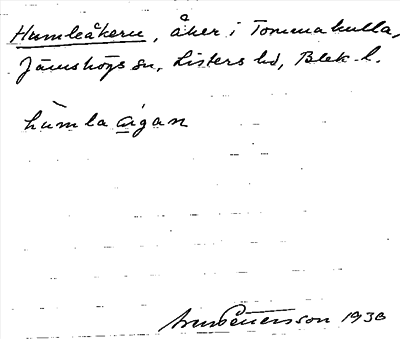 Humleåkern, åker i Tommakulla,
Jämshögs sn, Listers hd, Blek. l.
humla aigan
1930